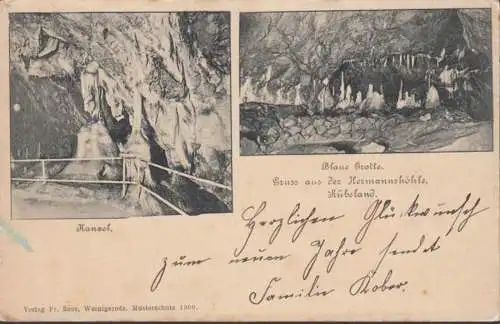 Blaue Grotte.
Gruss aus der Hermannshöhle,
Rübeland.
Kanzel.
Herzlichen Glückwunsch
zum neuen Jahre sendet
Familie Kober.
Verlag Fr. Rose, Wernigerode, Musterschutz 1900.